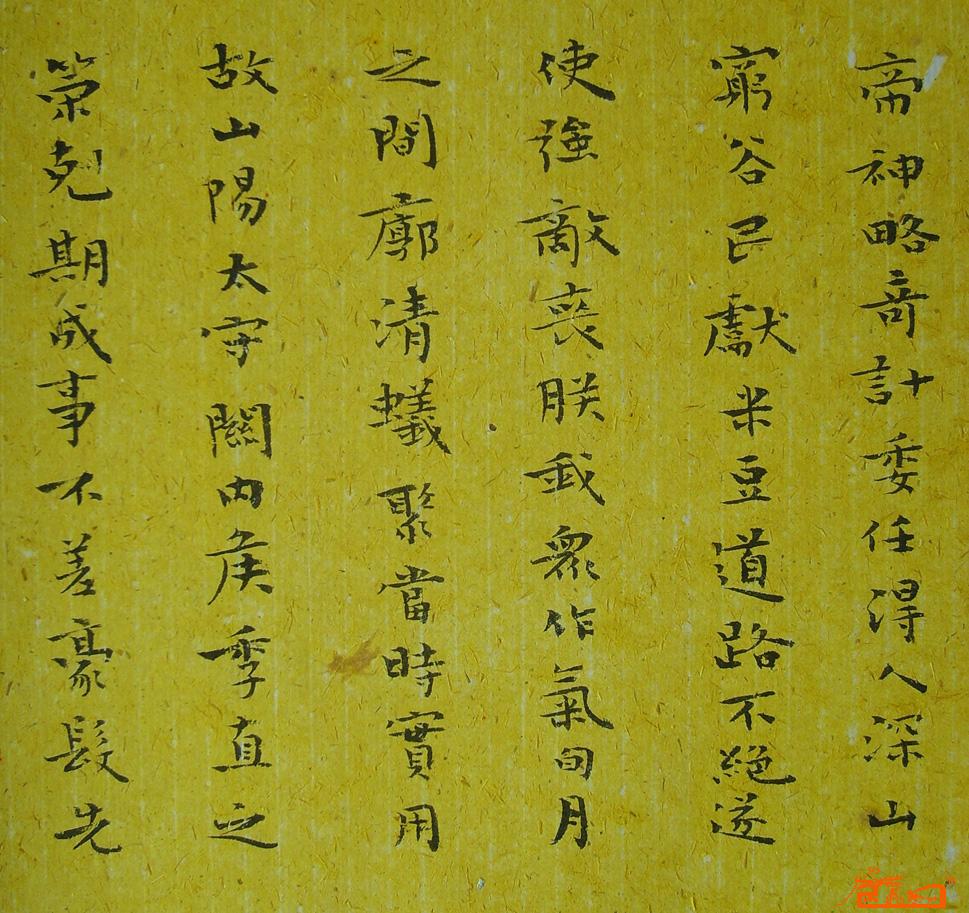 帝神略奇計委任得人深山
窮谷民獻米豆道路不絕遂
使強敵喪膽我眾作氣旬月
之間廓清蟻聚當時實用
故山陽太守關內侯季直之
策剋期成事不差豪髮先